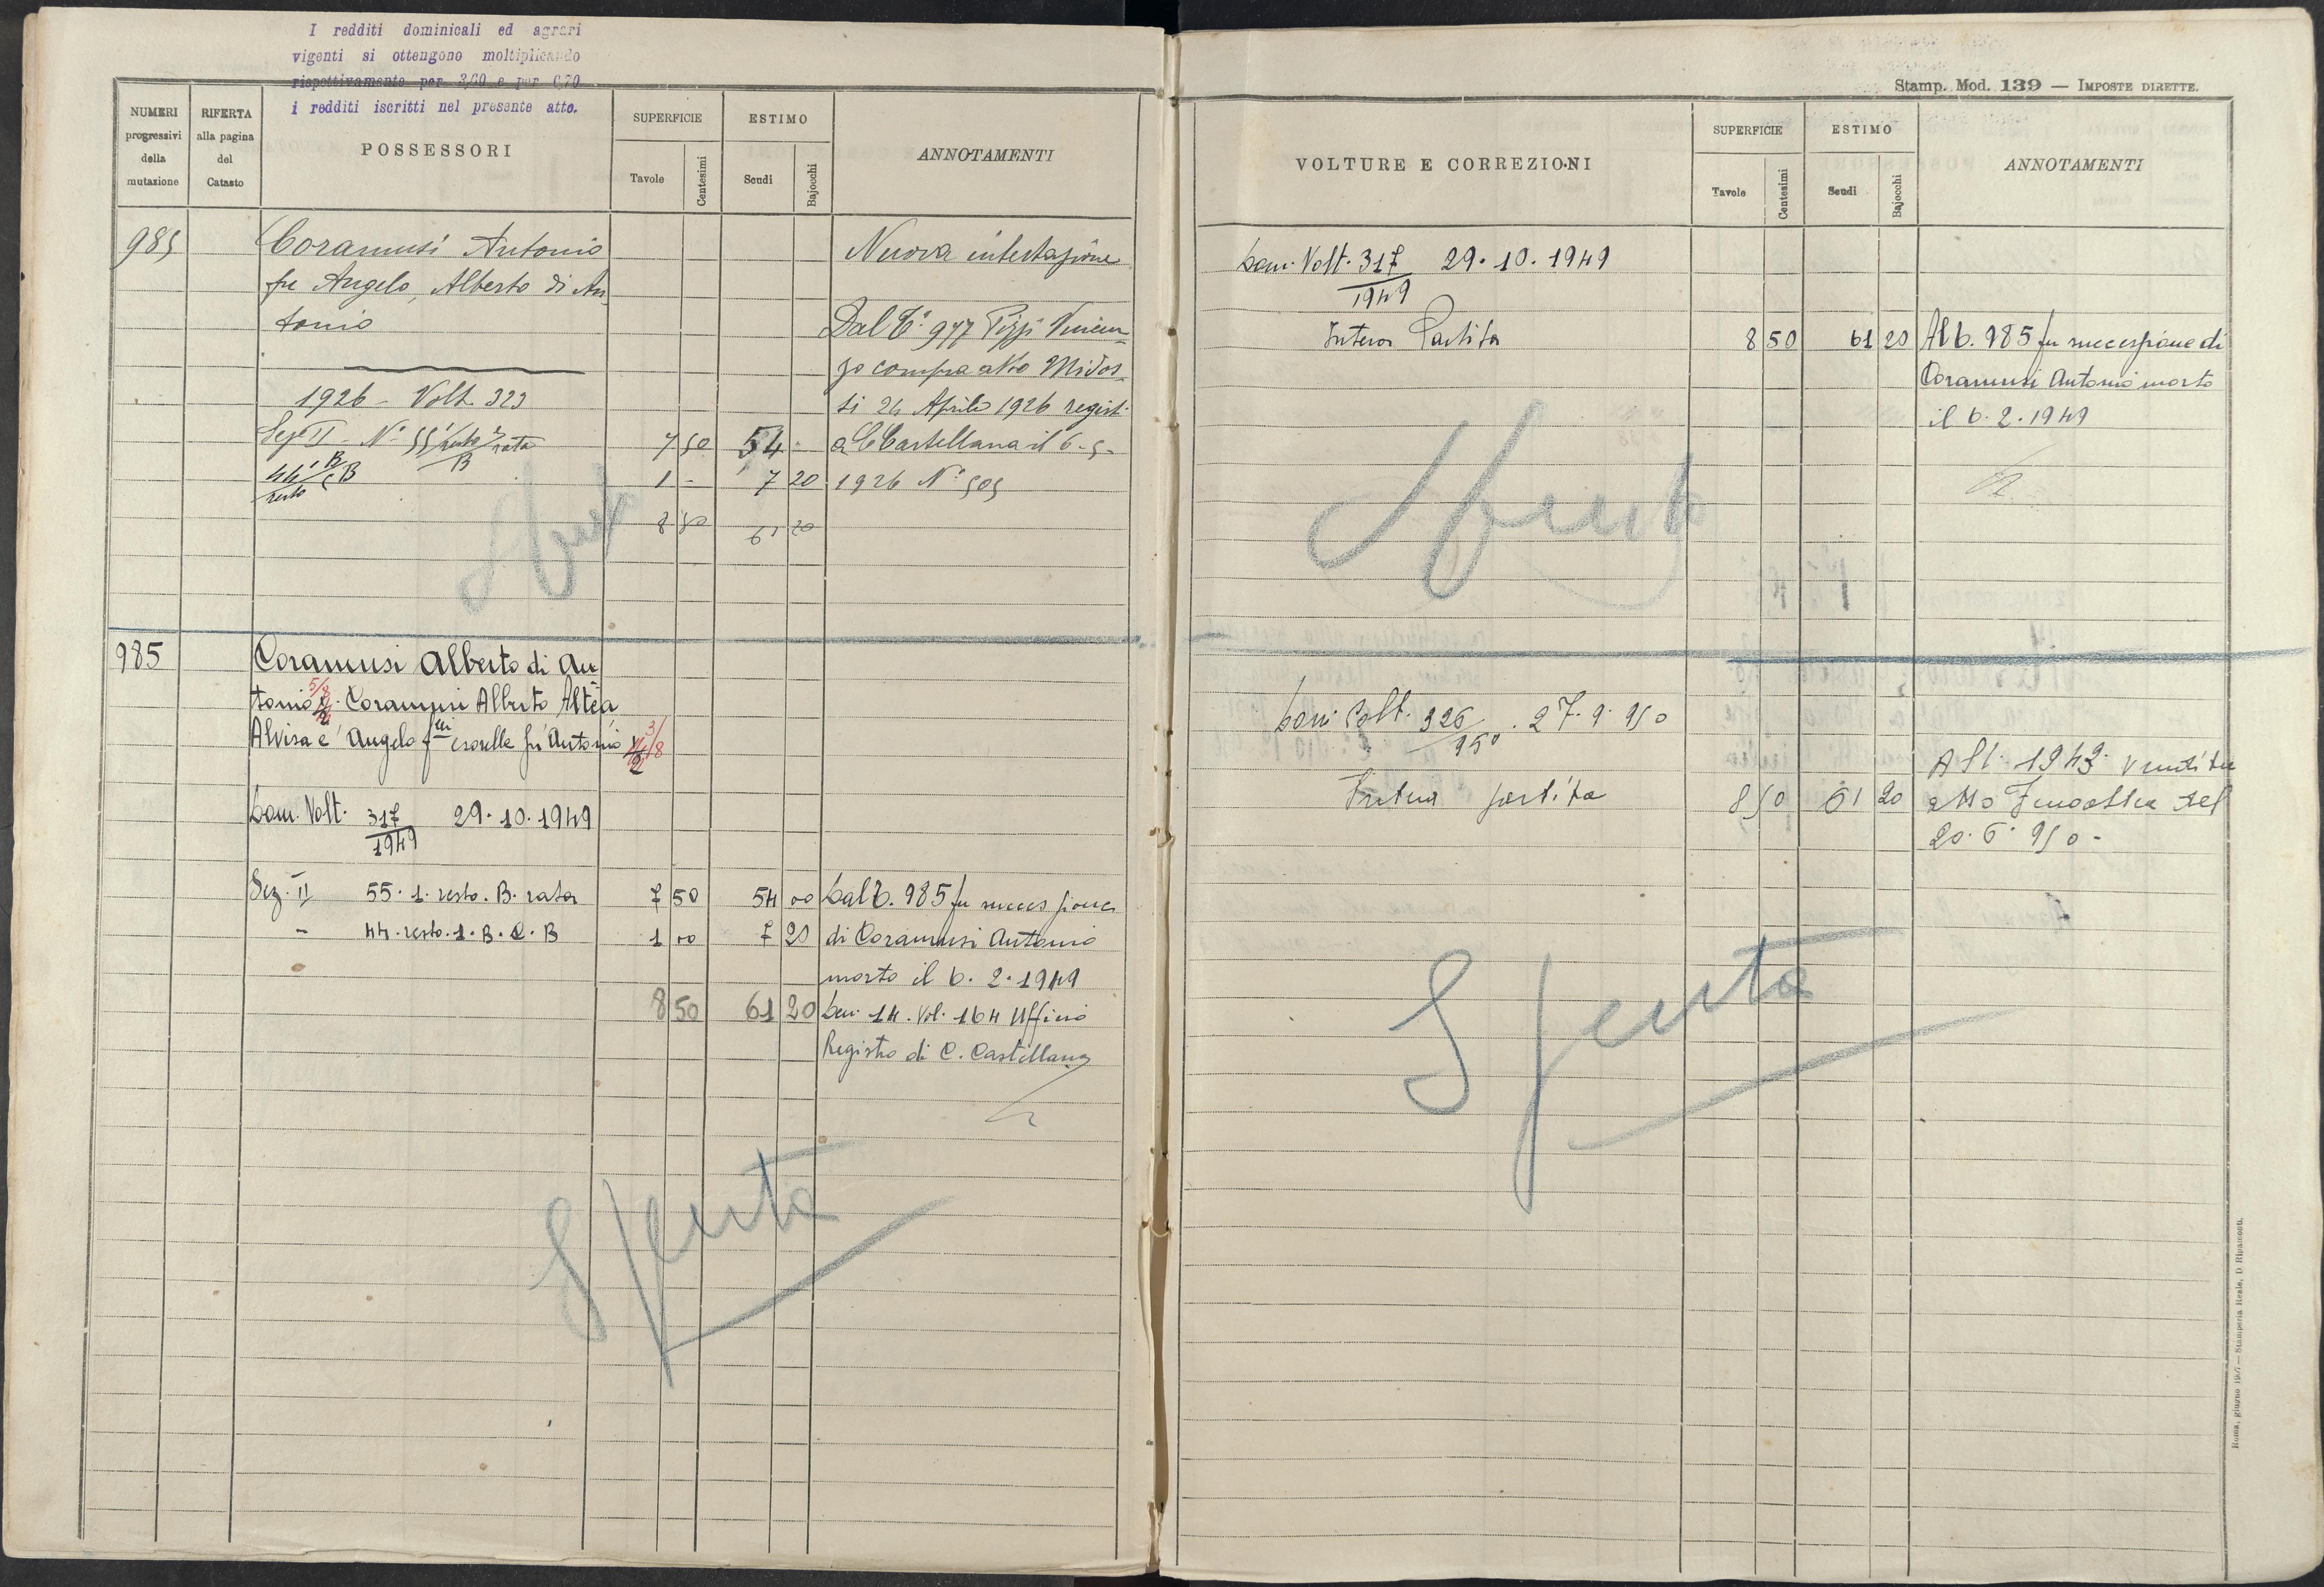 I redditi dominicali ed agrari
vigenti si ottengono moltiplicando
rispettivamente per 3,60 e per 0,70
i redditi iscritti nel presente atto.
NUMERI progressivi della mutazione
RIFERTA alla pagina del Catasto
POSSESSORI
SUPERFICIE
Tavole
Centesimi
ESTIMO
Scudi
Bajocchi
ANNOTAMENTI
985 Coramusi Antonio Nuova intestazione
fu Angelo, Alberto di An
tonio Dal C° 977 Pizzi Vincen
zo compra atto Midos
1926 - Volt. 323 si 24 Aprile 1926 regist.
Sez II - N° 55 1/resto 2 rata B 7 50 54 - a C Castellana il 6-5-
44 1 B/resto C B 1 - 7 20 1926 N° 505
8 50 61 20
Spento
985 Coramusi Alberto di An
tonio 5/8 Coramusi Alberto Altea
Alvisa e Angelo f.lli e sorelle fu Antonio 3/8
Dom. Volt. 317/1949 29.10.1949
Sez. II 55.1.resto.B.rata 7 50 54 00 Dal C. 985 fu successione
- 44.resto.1.B.C.B 1 00 7 20 di Coramusi Antonio
morto il 6.2.1949
8 50 61 20 Den. 14. Vol. 164 Ufficio
Registro di C. Castellana
Spenta
Stamp. Mod. 139 — IMPOSTE DIRETTE.
VOLTURE E CORREZIONI
SUPERFICIE
Tavole
Centesimi
ESTIMO
Scudi
Bajocchi
ANNOTAMENTI
Dom. Volt. 317/1949 29.10.1949
Intera Partita 8 50 61 20 Al C. 985 fu successione di
Coramusi Antonio morto
il 6.2.1949
Spento
Dom. Volt. 326/950 . 27.9.950
Intera partita 8 50 61 20
Al C. 1943 vendita
atto del
20.6.950-
Spenta
Roma, giugno — Stamperia Reale, D. Ripamonti.